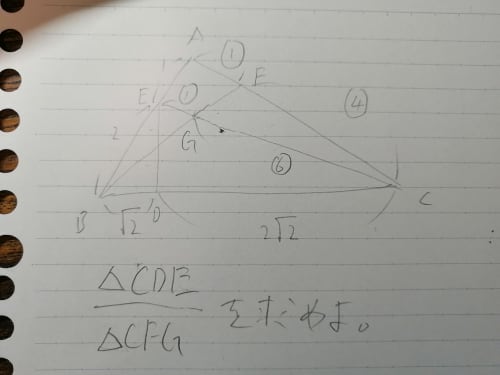 A
①
1
F
E
①
④
2
G
⑥
B
√2
D
2√2
C
△CDE
△CFG
を求めよ。